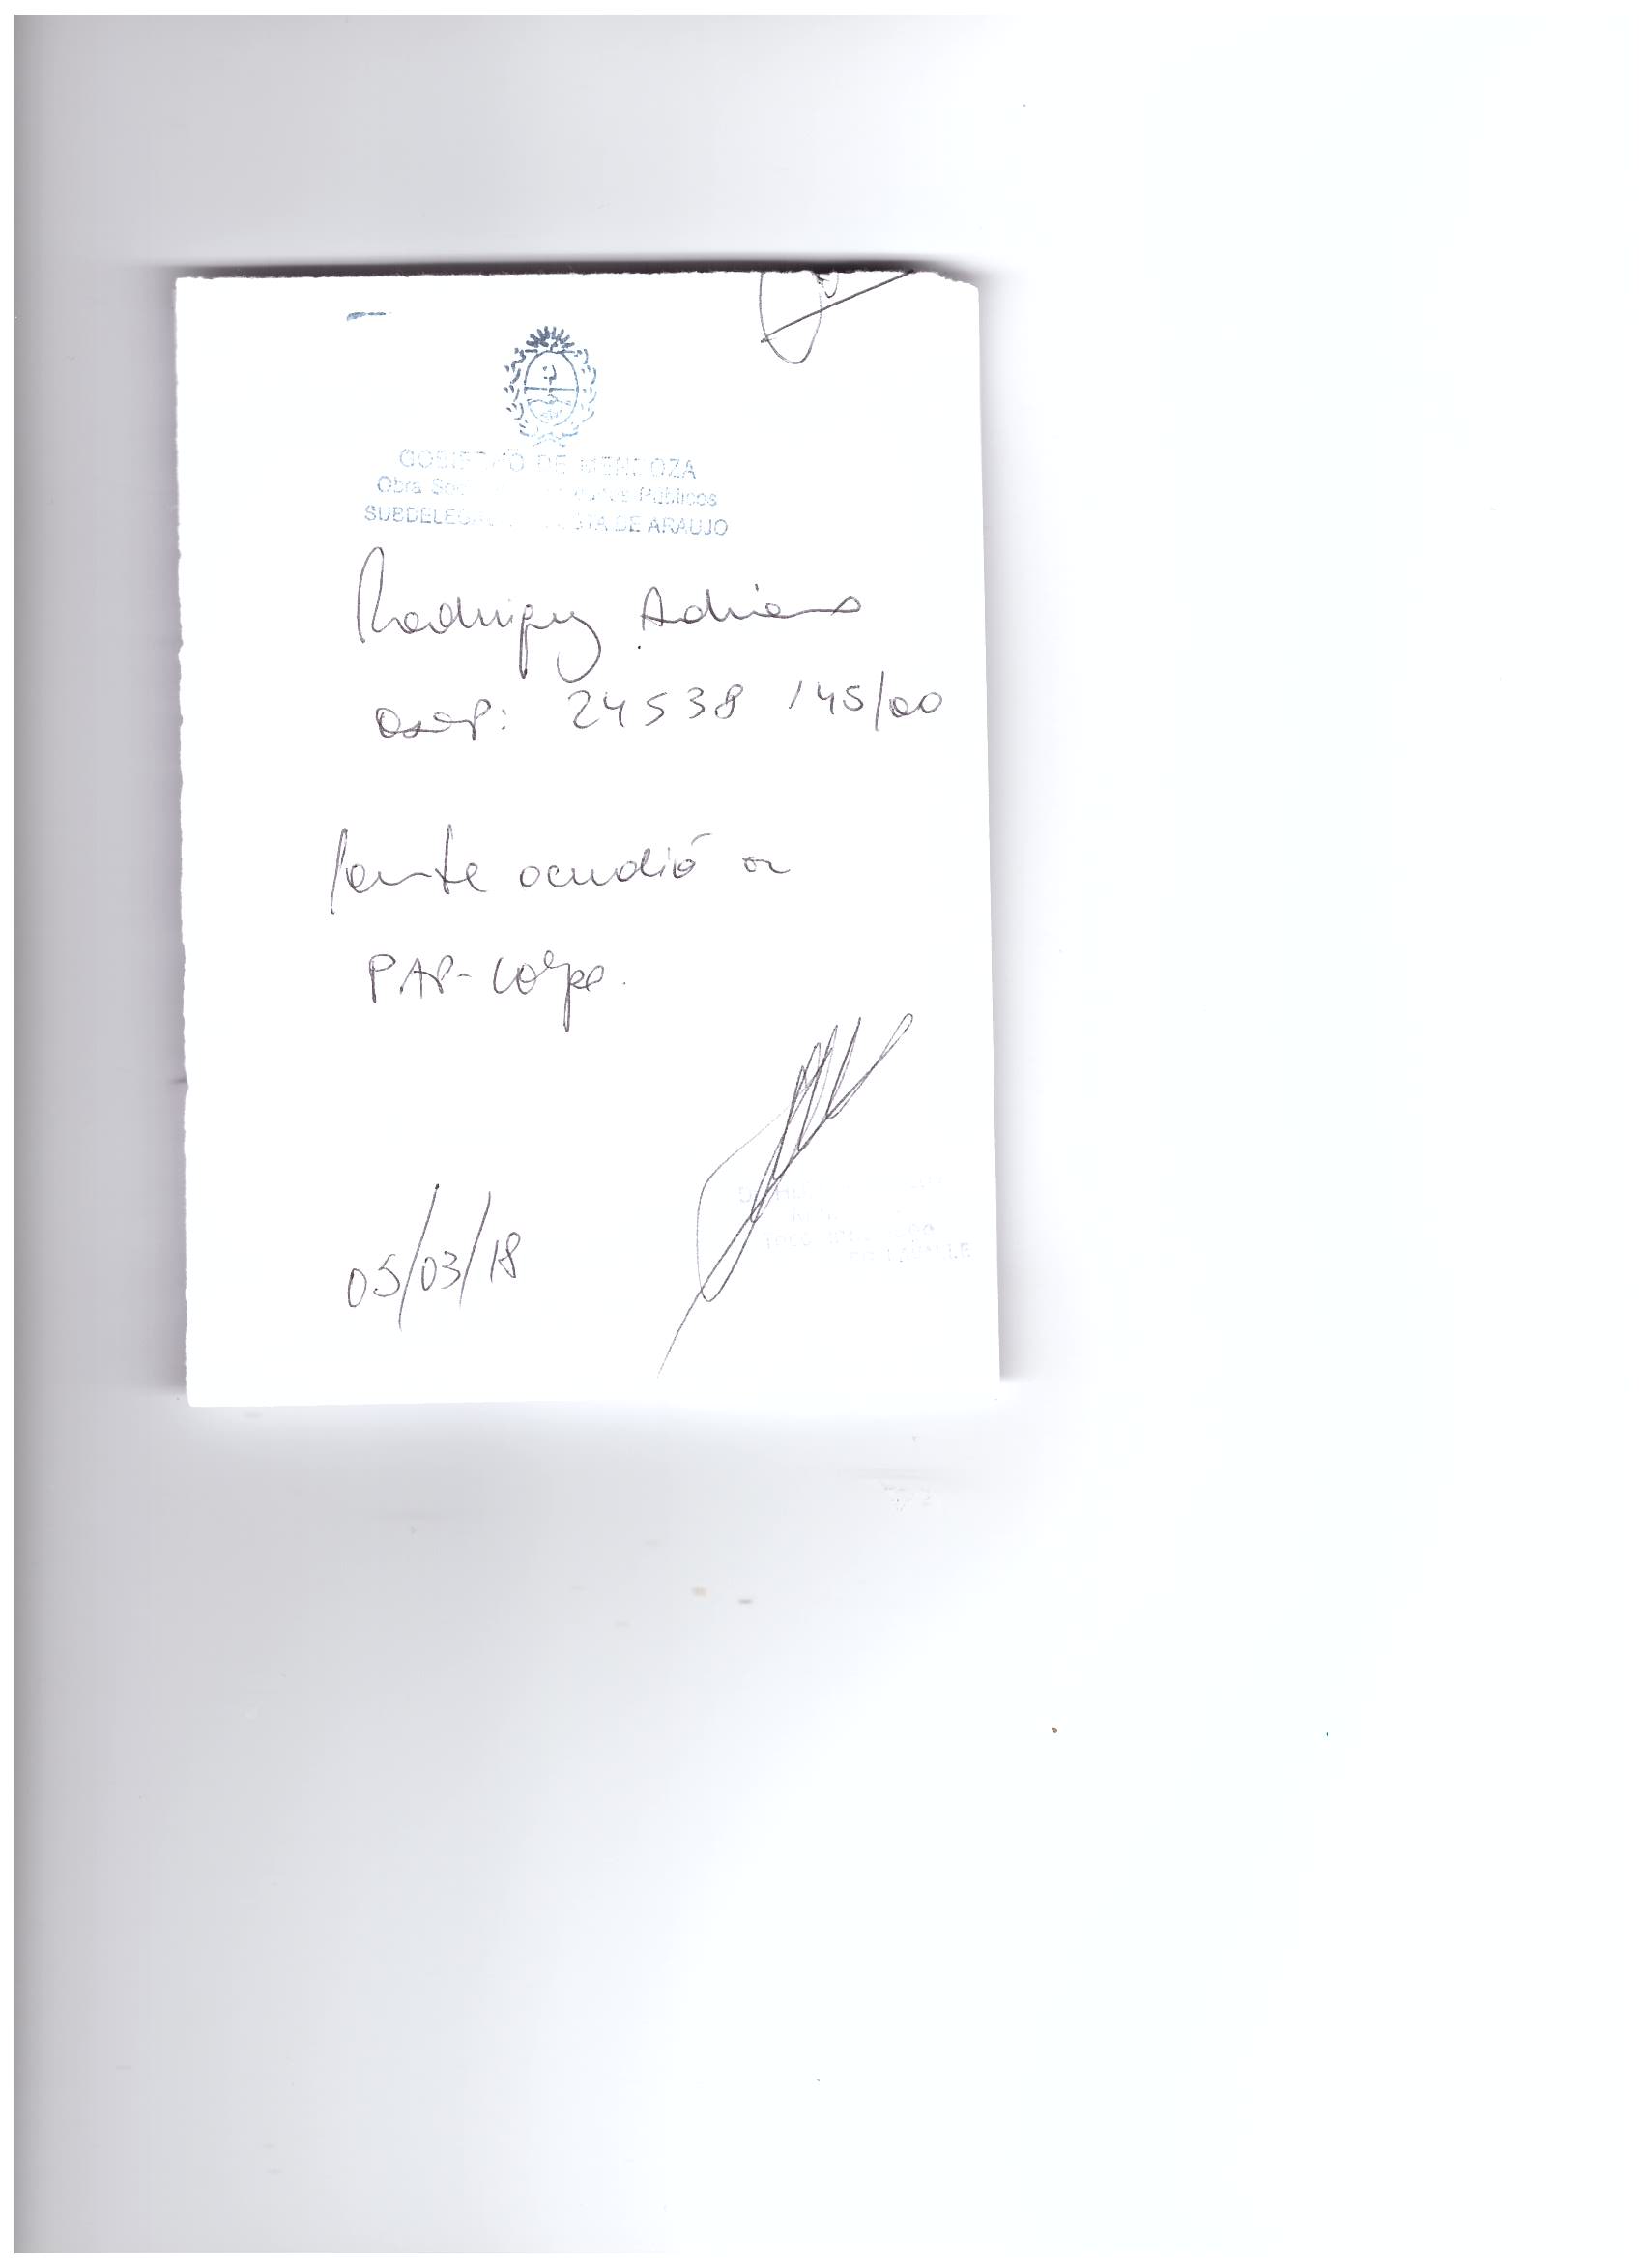 GOBIERNO DE MENDOZA
Obra Públicos
SUBDELEGA DE ARAUJO
Rodriguez Adriana
osep: 24538 145/00
acudió a
PAP-Colpo.
05/03/18